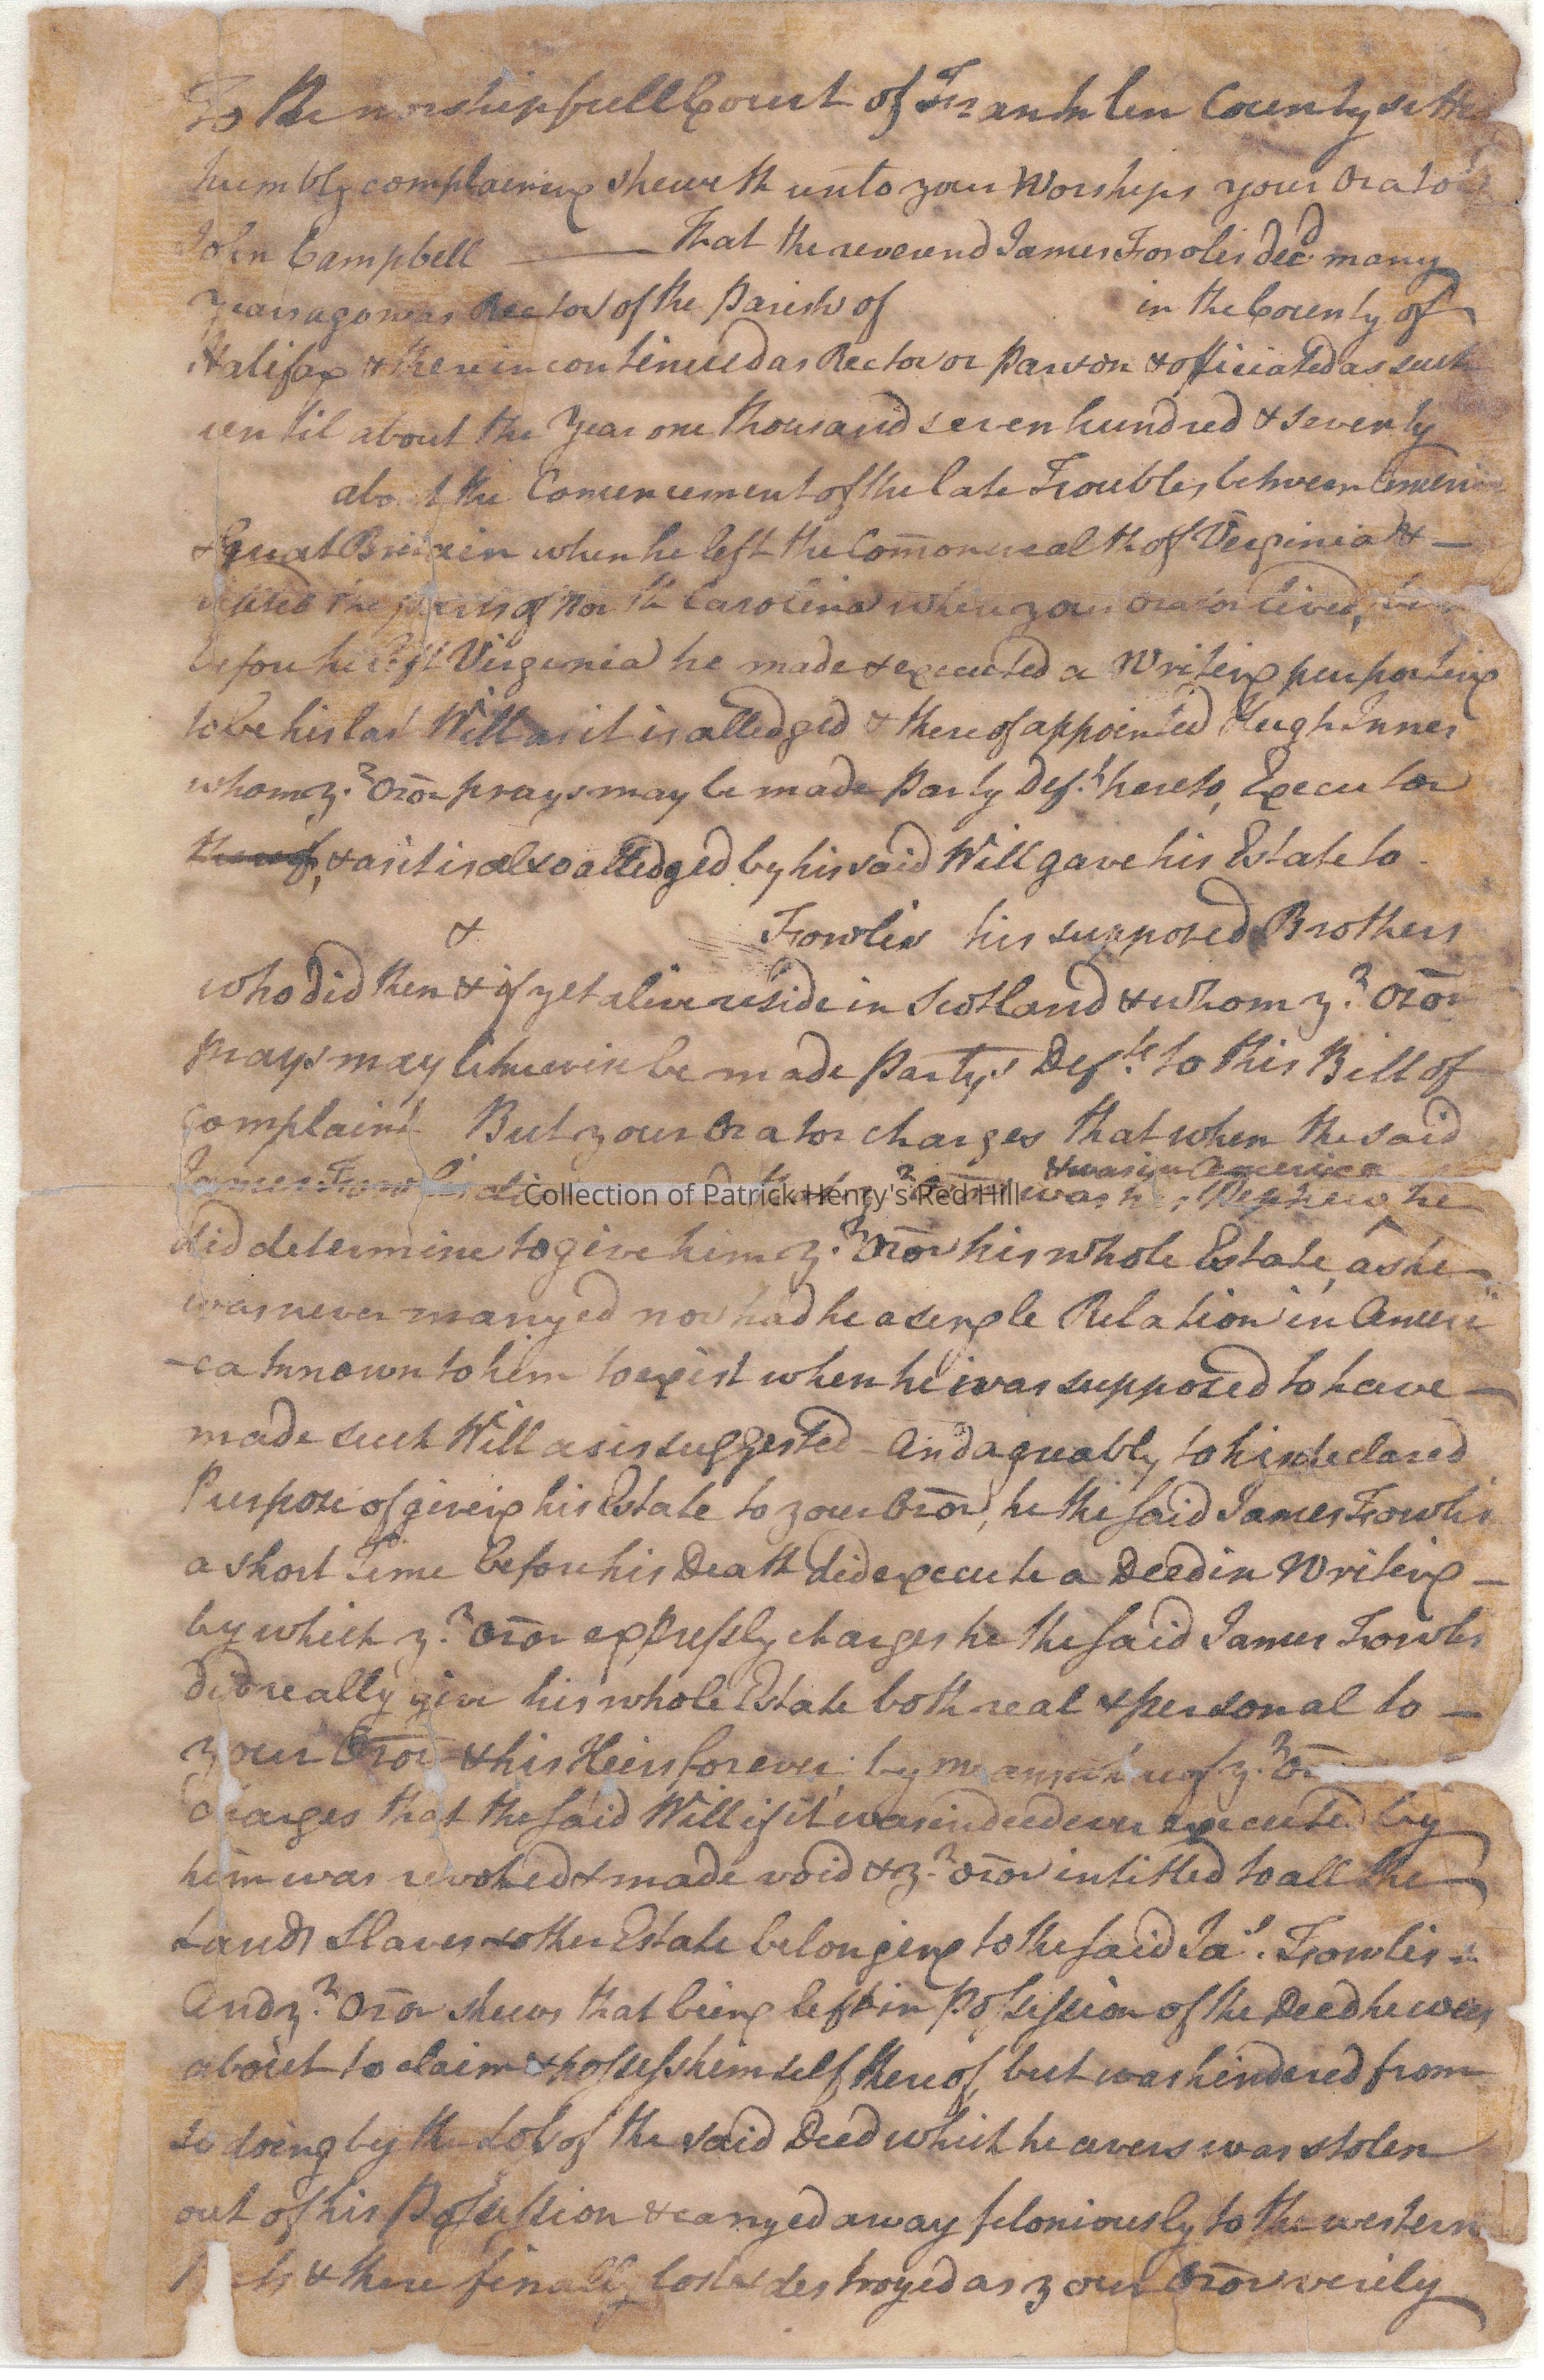 To the worshipfull Court of Franklin County in the
humbly complaining sheweth unto your Worships your Orator
John Campbell — That the reverend James Fowlis decd many
years ago was Rector of the Parish of in the County of
Halifax & therein continued as Rector or Parson & officiated as such
until about the Year one thousand seven hundred & seventy
about the Comencement of the late Troubles between America
& Great Britain when he left the Comonwealth of Virginia & —
visited the parts of North Carolina where your orator lived,
before he left Virginia he made & executed a Writing purporting
to be his last Will as it is alledged & thereof appointed Hugh Innes
whom yr. Oror prays may be made Party Deft. hereto, Executor
thereof, & as it is also alledged by his said Will gave his Estate to -
& Fowlis his supposed Brothers
who did then & if yet alive reside in Scotland & whom yr. Oror
prays may likewise be made Partys Defts. to this Bill of
complaint But your Orator charges that when the said
& was in America
James Fowlis was his Nephew he
did determine to give him yr. Oror his whole Estate, as he
was never marryed nor had he a single Relation in Ameri
-ca known to him to exist when he was supposed to have —
made such Will as is suggested - And agreably to his declared
Purpose of giveing his Estate to your Oror, he the said James Fowlis
a short Time before his Death did execute a Deed in Writing —
by which yr. Oror expressly charges he the said James Fowlis
did really give his whole Estate both real & personal to —
your Oror & his Heirs forever, by means whereof yr. Or
charges that the said Will if it was indeed ever executed by
him was revoked & made void & yr. Oror intitled to all the
Lands Slaves & other Estate belonging to the said Jas. Fowlis
And yr. Oror shews that being left in Possession of the Deed he was
about to claim & possess himself thereof, but was hindered from
so doing by the Loss of the said Deed which he avers was stolen
out of his Possession & carryed away feloniously to the western
Parts & there finally lost & destroyed as your Oror verily
Collection of Patrick Henry's Red Hill